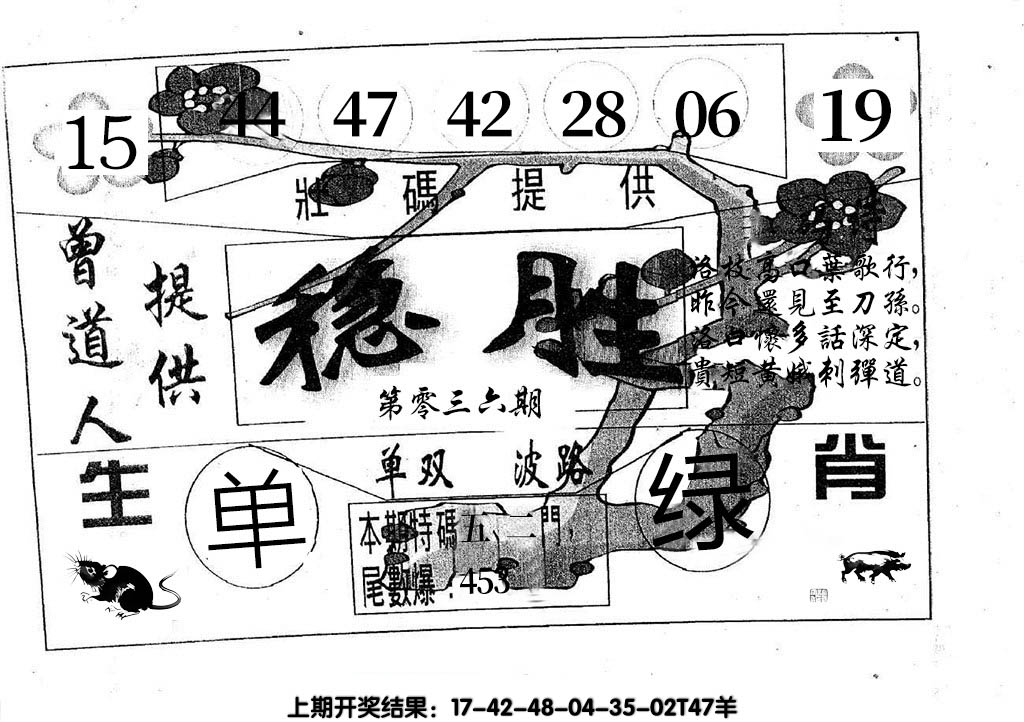 15 44 47 42 28 06 19
壯碼提供
曾道人
提供
稳胜
第零三六期
特
洛枝高口葉歌行，
昨今還見至刀孫。
洛白懷多話深定，
貴短黄娥刺彈道。
单双 波路
生
肖
单
绿
本期特碼五、二門，
尾數爆：453
上期开奖结果：17-42-48-04-35-02T47羊